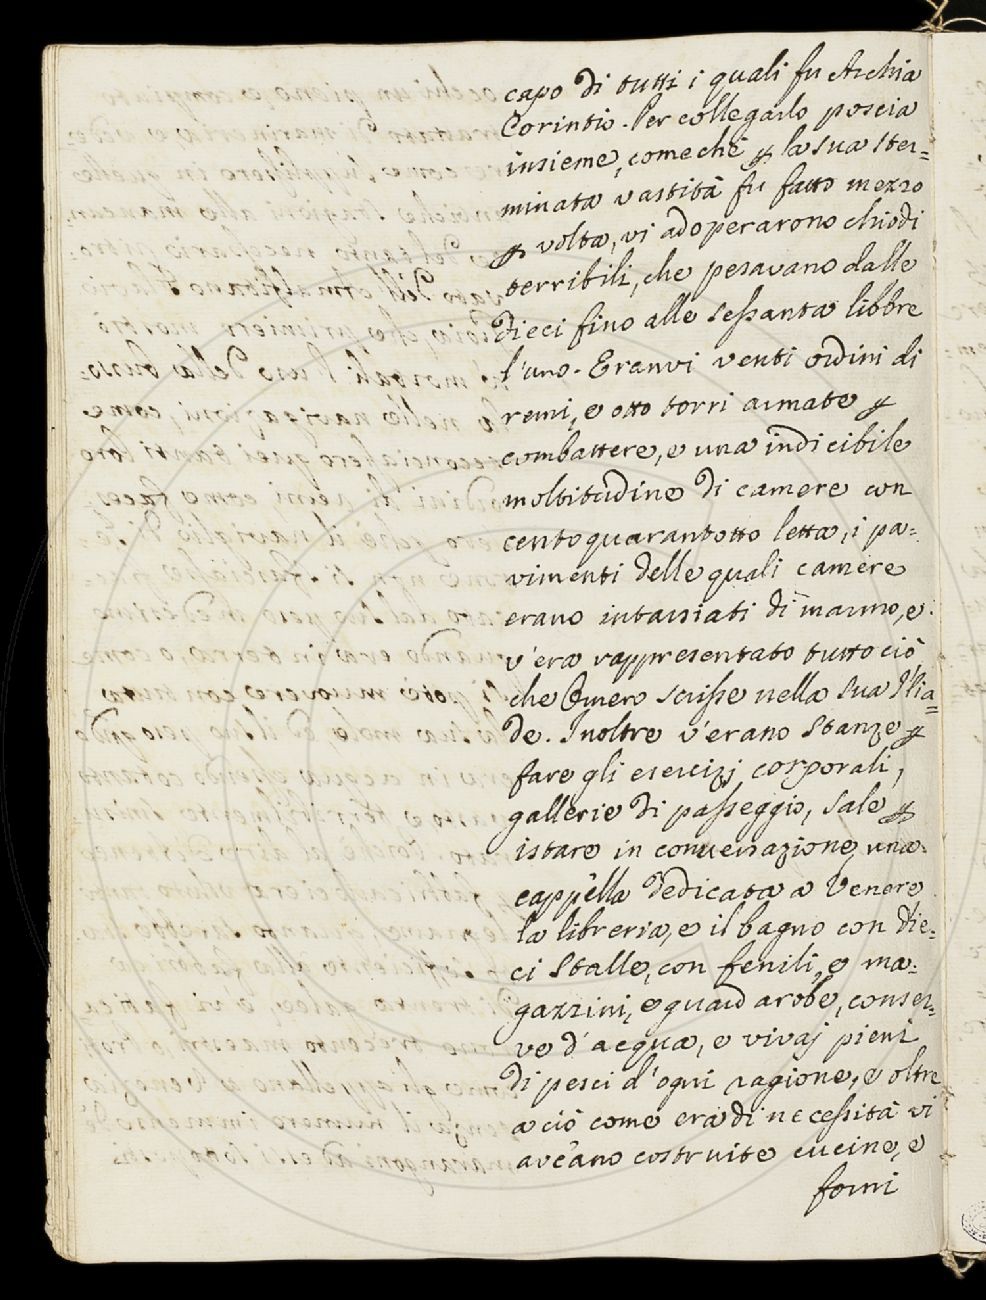 capo di tutti i quali fu Archia
Corintio. Per collegarlo poscia
insieme, come che ꝑ la sua ster=
minata vastità fu fatto mezzo
ꝑ volta, vi adoperarono chiodi
terribili, che pesavano dalle
dieci fino alle sessanta libbre
l'uno. Eranvi venti ordini di
remi, e otto torri armate ꝑ
combattere, e una indicibile
moltitudine di camere con
cento quarantotto letta, i pa=
vimenti delle quali camere
erano intarsiati di marmo, e
v'era rappresentato tutto ciò,
che Omero scrisse nella sua Ilia=
de. Inoltre v'erano stanze ꝑ
fare gli esercizj corporali,
gallerie di passeggio, sale ꝑ
istare in conversazione, una
cappella dedicata a Venere
la libreria, e il bagno con die=
ci stalle, con fenili, e ma=
gazzini, e guardarobe, conser=
ve d'acqua, e vivaj pieni
di pesci d'ogni ragione, e oltre
a ciò come era di necessità vi
aveano costruite cucine, e
forni